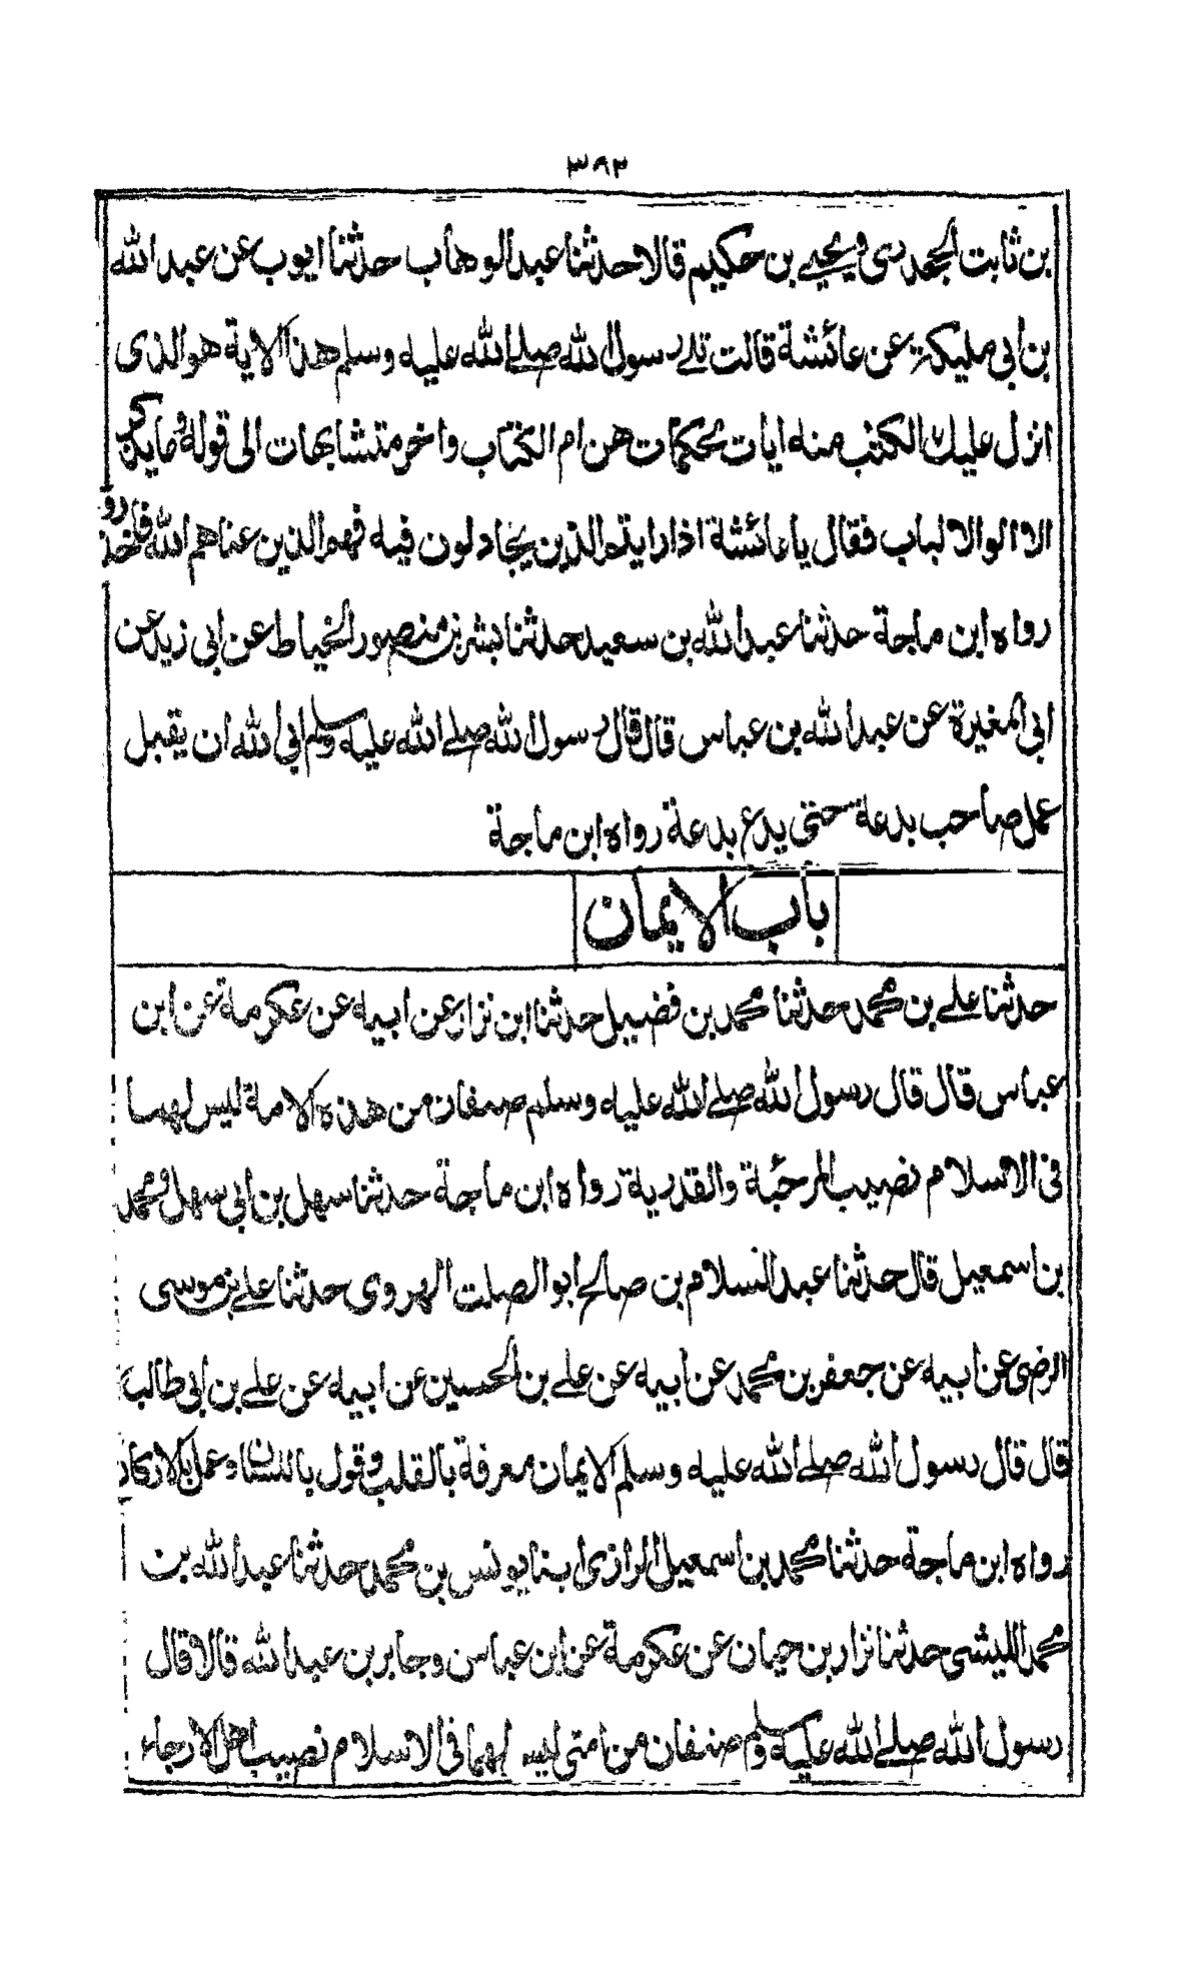 ٣٨٢
بن ثابت الجحدري ويحيى بن حكيم قالا حدثنا عبد الوهاب حدثنا ايوب عن عبد الله
بن أبي مليكة عن عائشة قالت تلا رسول الله صلى الله عليه وسلم هذه الاية هو الذى
انزل عليك الكتٰب منه ايات محكمات هن ام الكتاب واخر متشابهات الى قوله وما يذكر
الا اولو الالباب فقال يا عائشة اذا رايتم الذين يجادلون فيه فهم الذين عناهم الله فاحذروهم
رواه ابن ماجة حدثنا عبد الله بن سعيد حدثنا بشر بن منصور الخياط عن ابى زيد عن
ابى المغيرة عن عبد الله بن عباس قال قال رسول الله صلى الله عليه وسلم ابى الله ان يقبل
عمل صاحب بدعة حتى يدع بدعة رواه ابن ماجة
باب الايمان
حدثنا على بن محمد حدثنا محمد بن فضيل حدثنا ابن نزار عن ابيه عن عكرمة عن ابن
عباس قال قال رسول الله صلى الله عليه وسلم صنفان من هذه الامة ليس لهما
فى الاسلام نصيب المرجئة والقدرية رواه ابن ماجة حدثنا سهل بن ابى سهل ومحمد
بن اسمعيل قال حدثنا عبد السلام بن صالح ابو الصلت الهروى حدثنا على بن موسى
الرضى عن ابيه عن جعفر بن محمد عن أبيه عن على بن الحسين عن ابيه عن على بن ابى طالب
قال قال رسول الله صلى الله عليه وسلم الايمان معرفة بالقلب وقول باللسان وعمل بالاركان
رواه ابن ماجة حدثنا محمد بن اسمعيل الرازى ابنا يونس بن محمد حدثنا عبد الله بن
محمد الليشى حدثنا نزار بن حيان عن عكرمة عن ابن عباس وجابر بن عبد الله قالا قال
رسول الله صلى الله عليه وسلم صنفان من امتى ليس لهما فى الاسلام نصيب اهل الارجاء